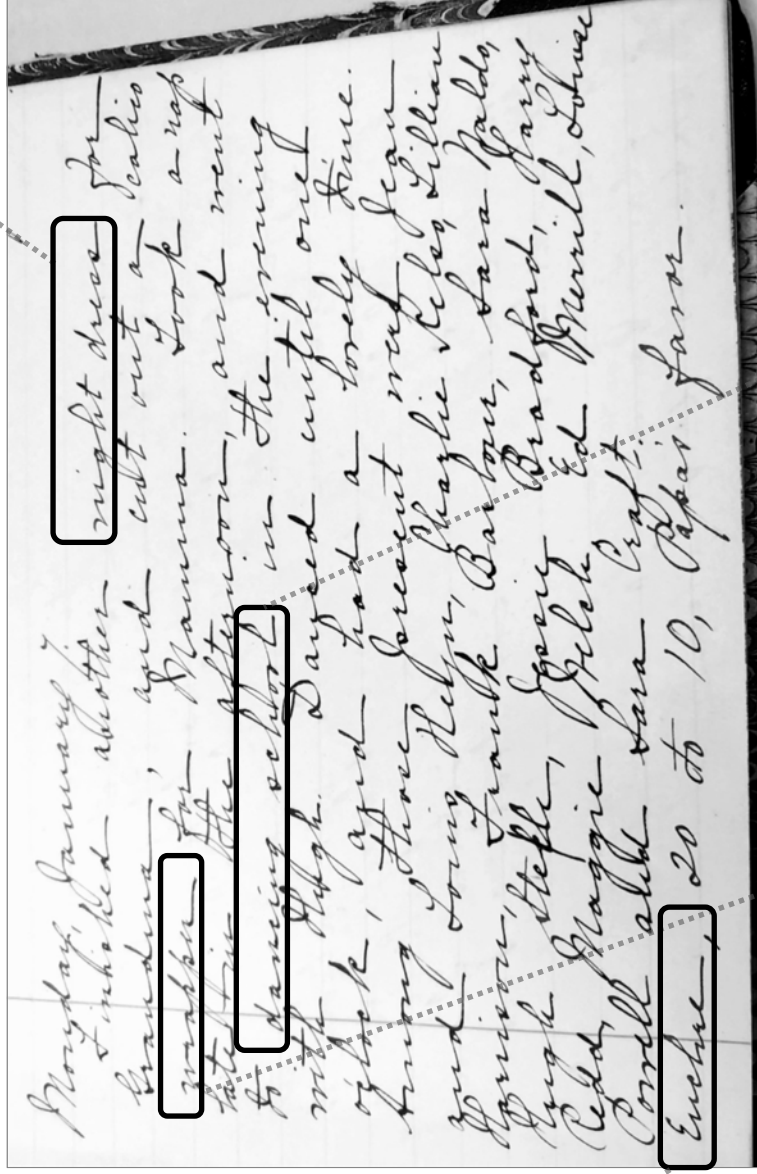 Monday, January 7.
Finished another night dress for
Grandma, and cut out a calico
wrapper for Mamma. Took a nap
late in the afternoon, and went
to dancing school in the evening
with Hugh. Danced until one
o'clock, and had a lovely time.
Among those present were Jean
and Loring Helm, Charlie Kelso, Lillian
Harrison, Frank Barbour, Sara Waldo,
Hugh Steffe, Jessie Bradford, Harry
Redd, Maggie Welch Ed Merrill, Louise
Powell and Sara Craft.
Euchre, 20 to 10, Papa's favor.